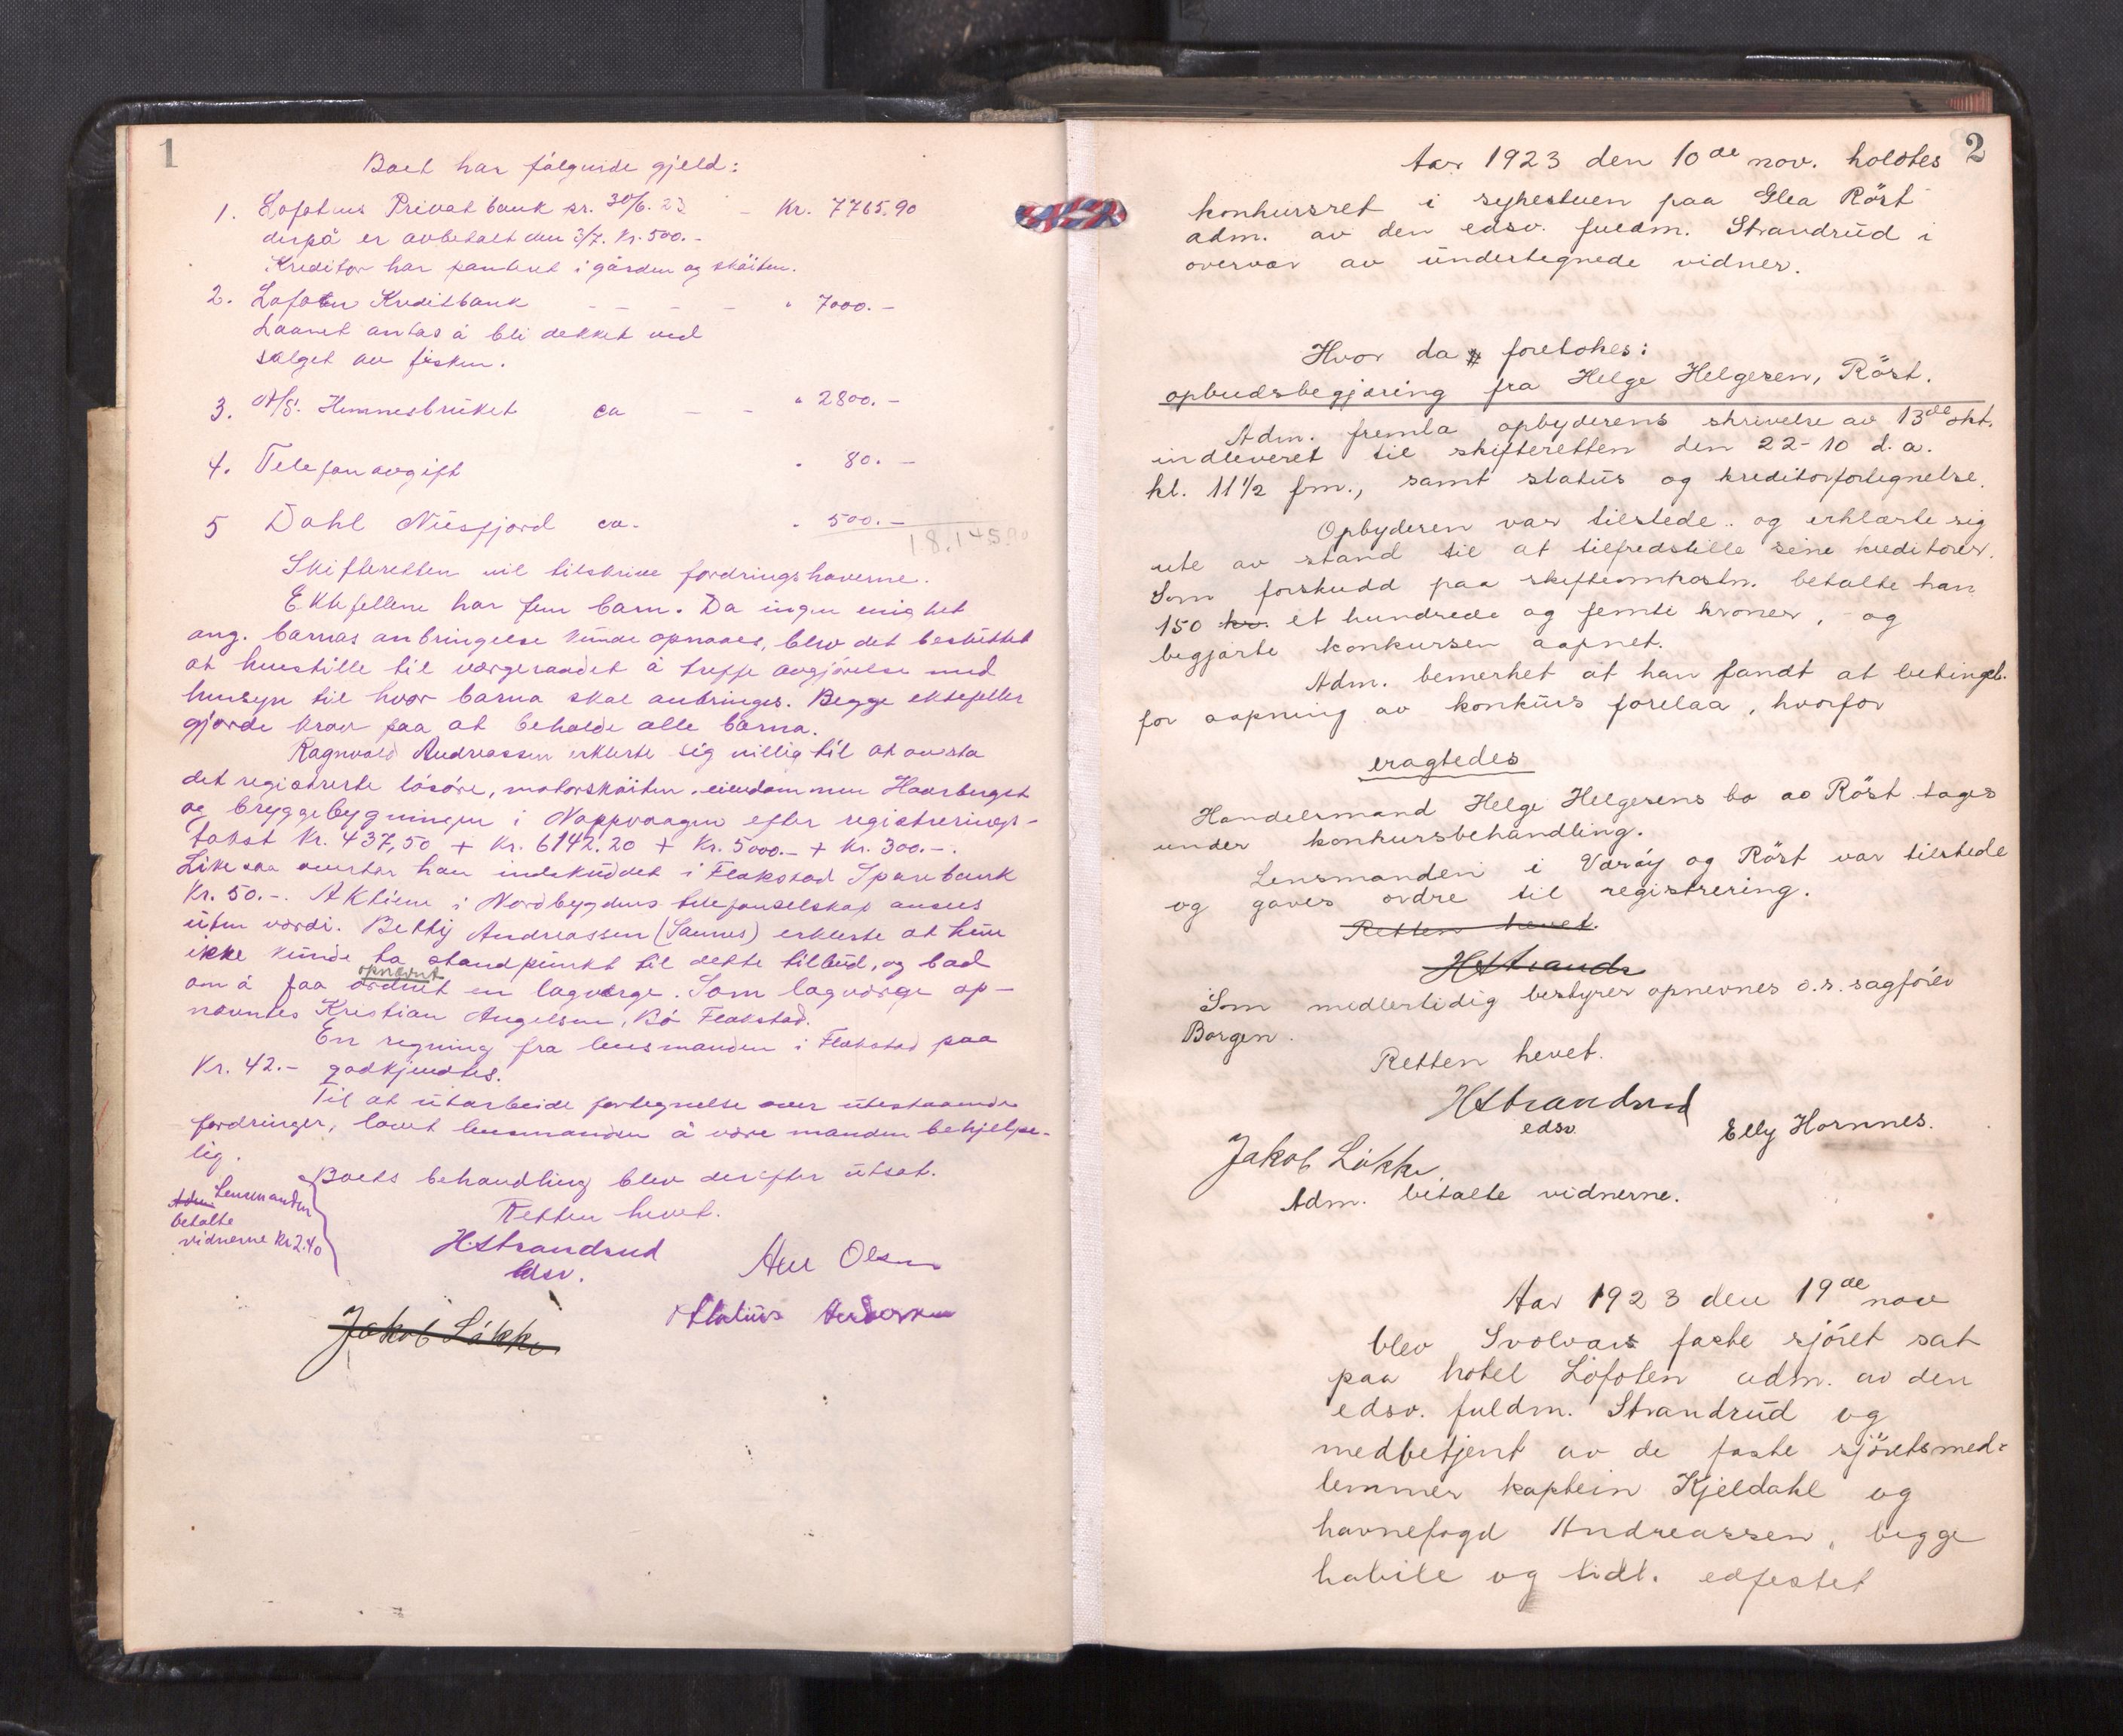 1
Boet har følgende gjeld:
1. Lofotens Privatbank pr. 30/6. 23 - Kr. 7765.90
derpå er avbetalt den 3/7. Kr. 500.-
Kreditor har panteret i gården og skøiten.
2. Lofoten Kreditbank - - - - " 7000.-
Laanet antas å bli dekket ved
salget av fisken.
3. A/S. Hemnesbruket ca - - " 2800.-
4. Telefonavgift " 80.-
5 Dahl Nusfjord ca. " 500.-
18.145.90
Skifteretten vil tilskrive fordringshaverne.
Ektefellene har fem barn. Da ingen enighet
ang. barnas anbringelse kunde opnaaes, blev det besluttet
at henstille til vergeraadet å treffe avgjørelse med
hensyn til hvor barna skal anbringes. Begge ektefeller
gjorde krav paa at beholde alle barna.
Ragnvald Andreassen erklerte sig villig til at overta
det registrerte løsøre, motorskøiten, eiendommen Haarberget
og bryggebygningen i Nappvaagen efter registrerings-
takst Kr. 437,50 + Kr. 6142.20 + Kr. 5000.- + Kr. 300.-.
Likesaa overtar han indskuddet i Flakstad Sparebank
Kr. 50.-. Aktiene i Nordbygdens telefonselskap ansees
uten værdi. Betty Andreassen (Sannes) erklerte at hun
ikke kunde ta standpunkt til dette tilbud, og bad
opnævnt
om å faa ordnet en lagverge. Som lagverge op-
nævntes Kristian Angelsen, Bø Flakstad.
En regning fra lensmanden i Flakstad paa
Kr. 42.- godkjendtes.
Til at utarbeide fortegnelse over utestaaende
fordringer, lovet lensmanden å være manden behjelpe-
lig.
Boets behandling blev derefter utsat.
Adm Lensmanden
betalte
vidnerne Kr 2.40
Retten hevet.
HStrandrud
edsv.
Axel Olsen
Jakob Løkke

2
Aar 1923 den 10de nov. holdtes
konkursret i sykestuen paa Glea Röst
adm. av den edsv. fuldm. Strandrud i
overvær av undertegnede vidner.
Hvor da foretokes:
opbudsbegjæring fra Helge Helgesen, Röst.
Adm. fremla opbyderens skrivelse av 13de okt.
indleveret til skifteretten den 22-10 d.a.
kl. 11 1/2 fm., samt status og kreditorfortegnelse.
Opbyderen var tilstede.. og erklærte sig
ute av stand til at tilfredstille sine kreditorer.
Som forskudd paa skifteomkostn. betalte han
150 kr. et hundrede og femti kroner, - og
begjærte konkursen aapnet.
Adm. bemerket at han fandt at betingel.
for aapning av konkurs forelaa, hvorfor
eragtedes
Handelsmand Helge Helgesens bo av Röst tages
under konkursbehandling.
Lensmanden i Værøy og Röst var tilstede
og gaves ordre til registrering.
Retten hevet.
HStrandr
Som medlertidig bestyrer opnevnes o.r. sagfører
Borgen.
Retten hevet.
HStrandrud
edsv
Elly Hornnes.
Jakob Løkke
Adm. betalte vidnerne.
Aar 1923 den 19de nov
blev Svolvær faste sjöret sat
paa hotel Lofoten adm. av den
edsv. fuldm. Strandrud og
medbetjent av de faste sjöretsmed=
lemmer kaptein Kjeldahl og
havnefogd Andreassen, begge
habile og tidl. edfestet